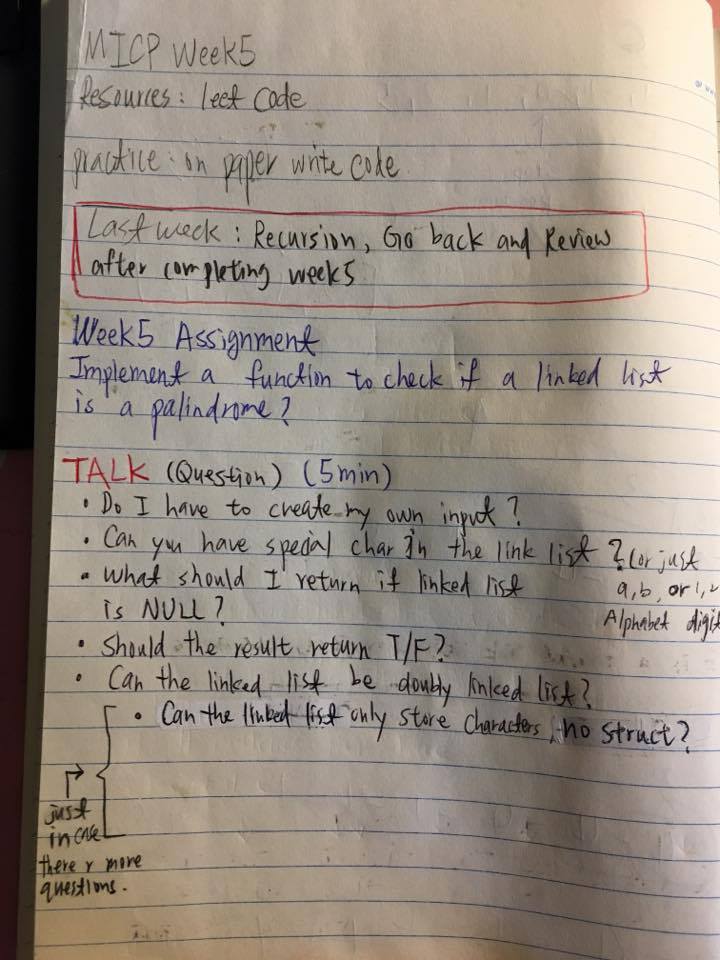 MICP Week5
Resources: leet code
practice: on paper write code.
Last week: Recursion, Go back and Review
after completing week5
Week5 Assignment
Implement a function to check if a linked list
is a palindrome?
TALK (Question) (5min)
• Do I have to create my own input?
• Can you have special char in the link list? (or just
a, b, or 1,
Alphabet digit
• What should I return if linked list
is NULL?
• Should the result return T/F?
• Can the linked list be doubly linked list?
• Can the linked list only store characters, no struct?
just
in case
there r more
questions.